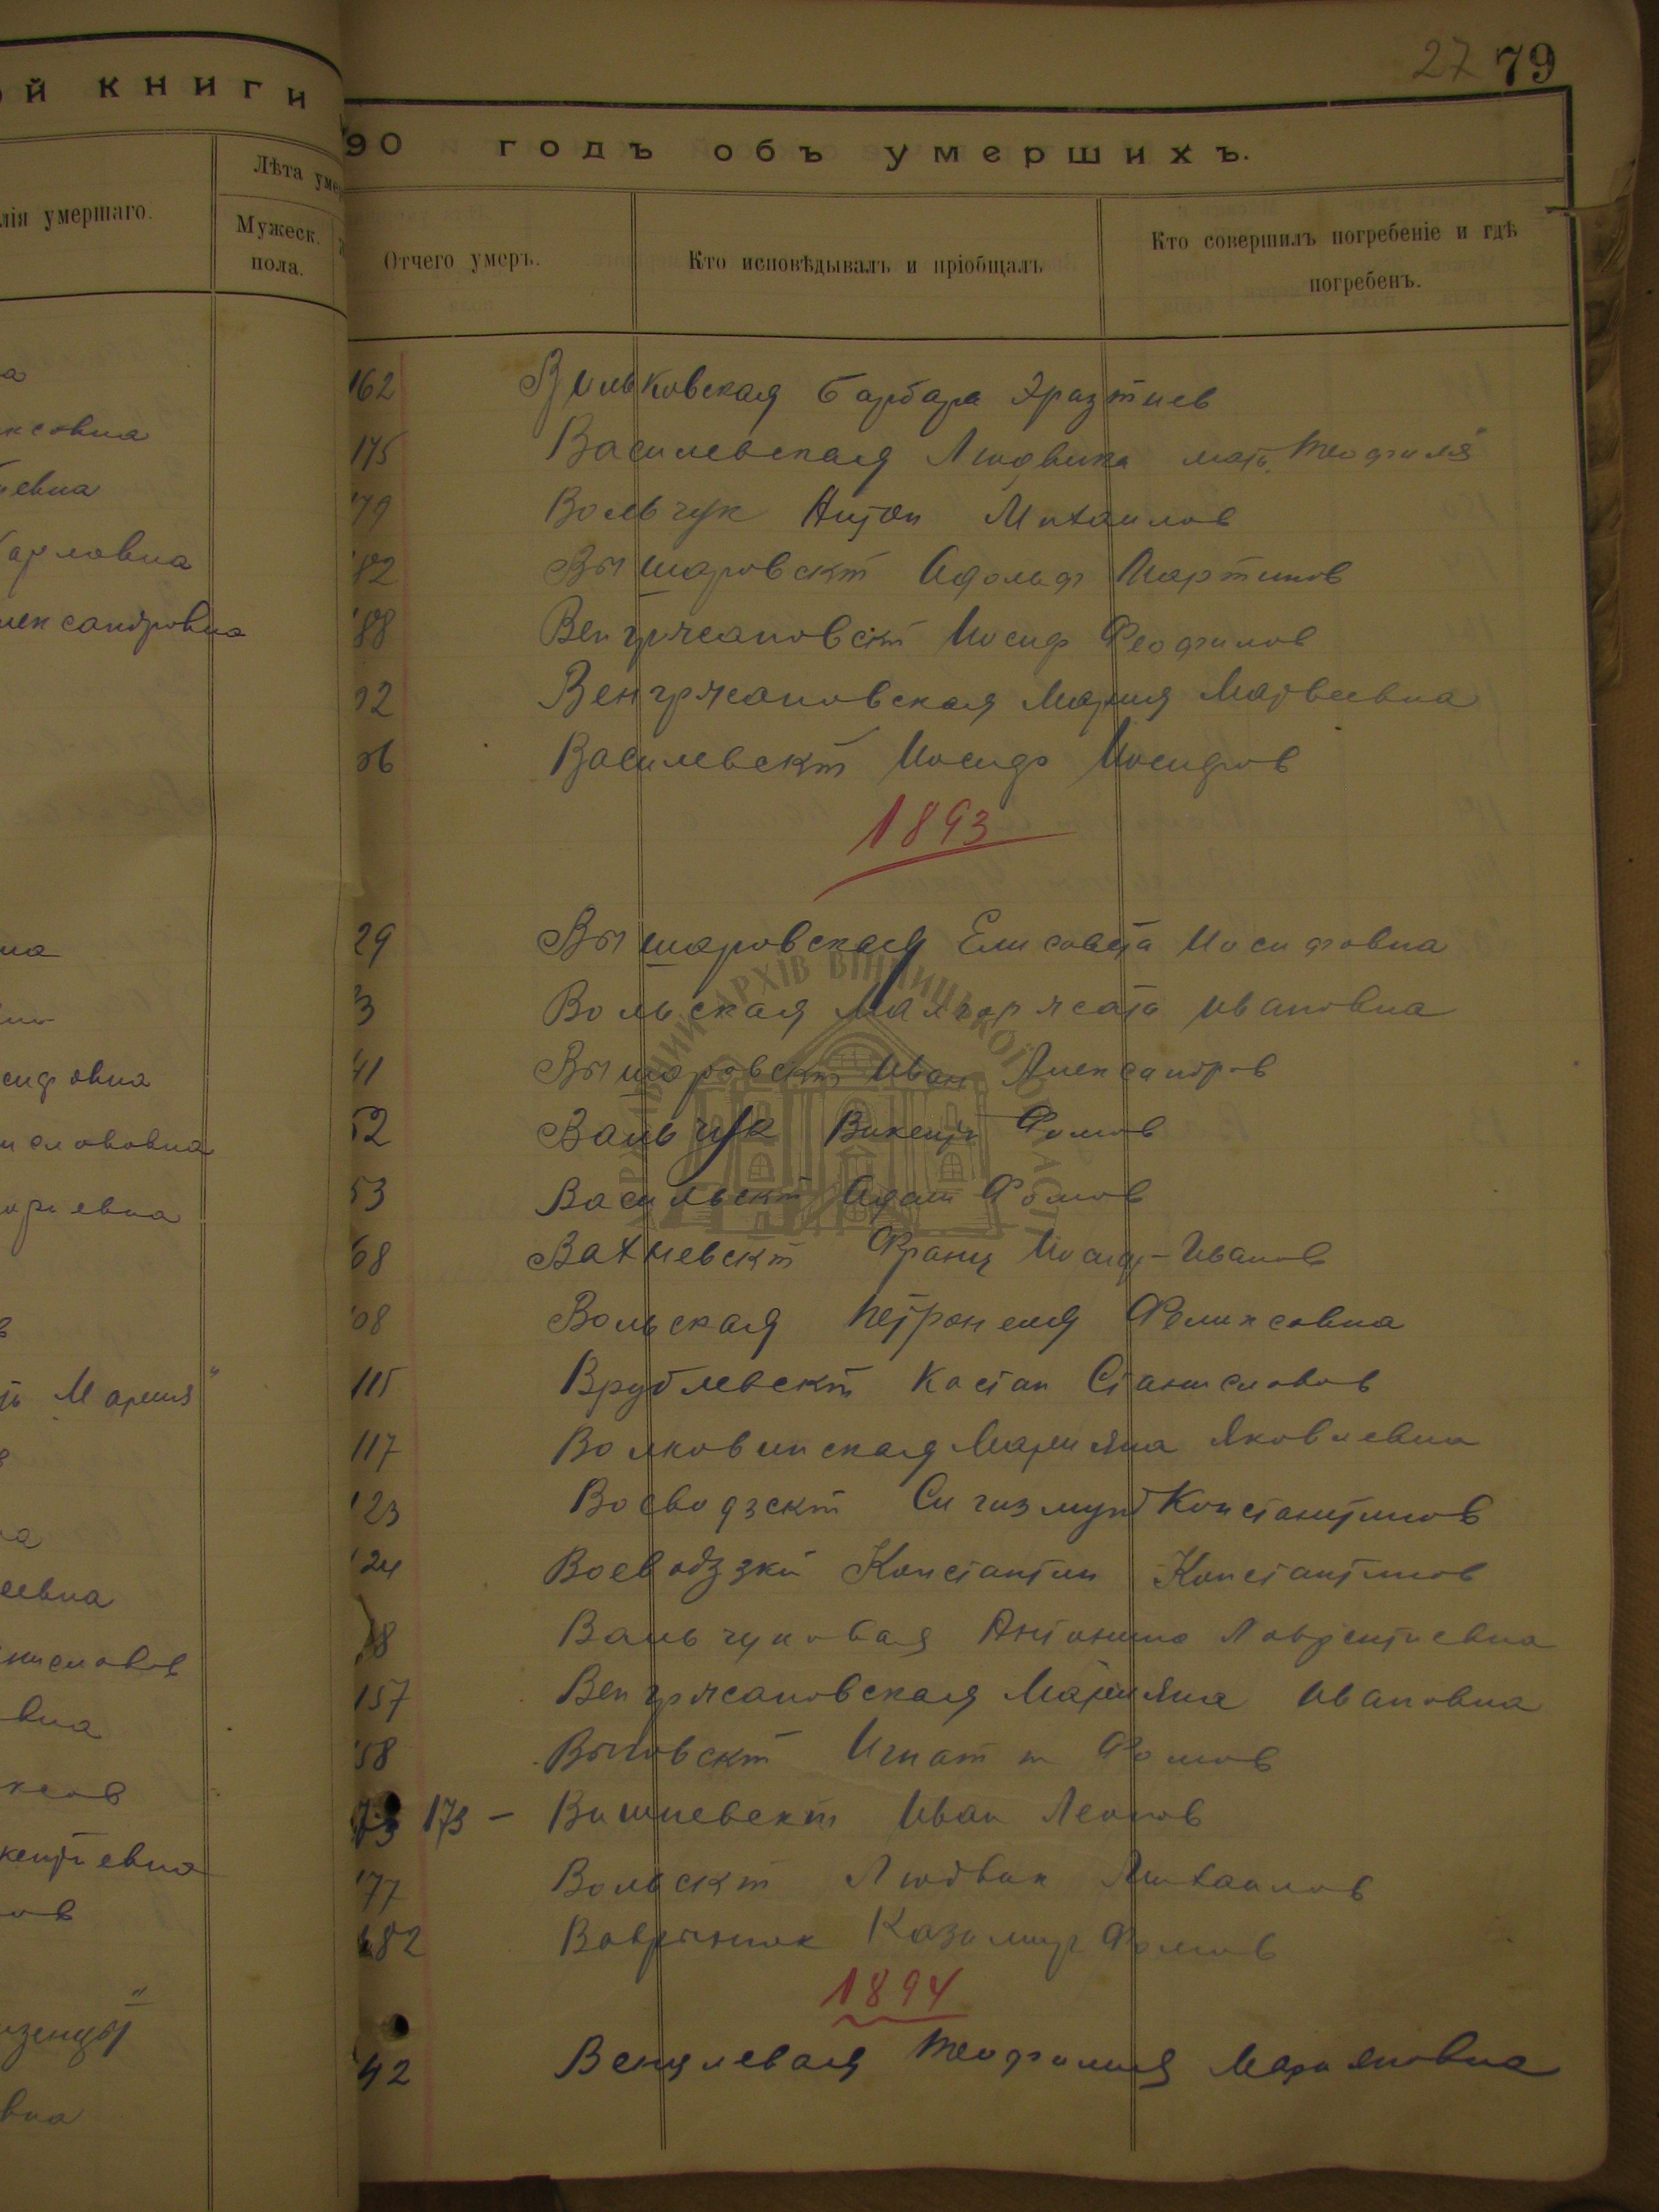 27 79
ой книги
90 годъ объ умершихъ.
лія умершаго.
Лѣта умер
Мужеск. пола.
Отчего умеръ.
Кто исповѣдывалъ и пріобщалъ
Кто совершилъ погребеніе и гдѣ погребенъ.
а
ксовна
евна
Карловна
лександровна
на
сифовна
иславовна
евна
ть Мария"
а
еевна
ниславов
вна
ксов
кентиевна
ов
вна
162 Вильковская Барбара
175 Василевская Людвика мать "Теофиля"
79 Вольчук Антон Михаилов
82 Вышаровскій Адольф Мартинов
88 Венгржановскій Иосиф Феофилов
92 Венгржановская Мария Матвеевна
06 Василевскій Иосиф Иосифов
1893
29 Вышаровская Елисавета Иосифовна
3 Вольская Малгоржата Ивановна
41 Вышаровскій Иван Александров
52 Вальчук Викентій Фомов
53 Васильскій Адам Фомов
68 Вахневскій Франц Иосиф-Иванов
08 Вольская Петронеля Феликсовна
115 Врублевскій Кастан Станиславов
117 Волковинская Марияна Яковлевна
123 Воеводзскій Сигизмунд Константинов
124 Воеводззкій Константин Константинов
8 Вальчуковая Антонина Лаврентиевна
157 Венгржановская Марияна Ивановна
58 Выговскій Игнатій Фомов
73 173 - Вишневскій Иван Леонов
77 Вольскій Людвик Михаилов
182 Вавринюк Казимир Фомов
1894
42 Венцлевая Теофилия Марияновна
АРХІВ ВІННИЦЬКОЇ ОБЛАСТІ